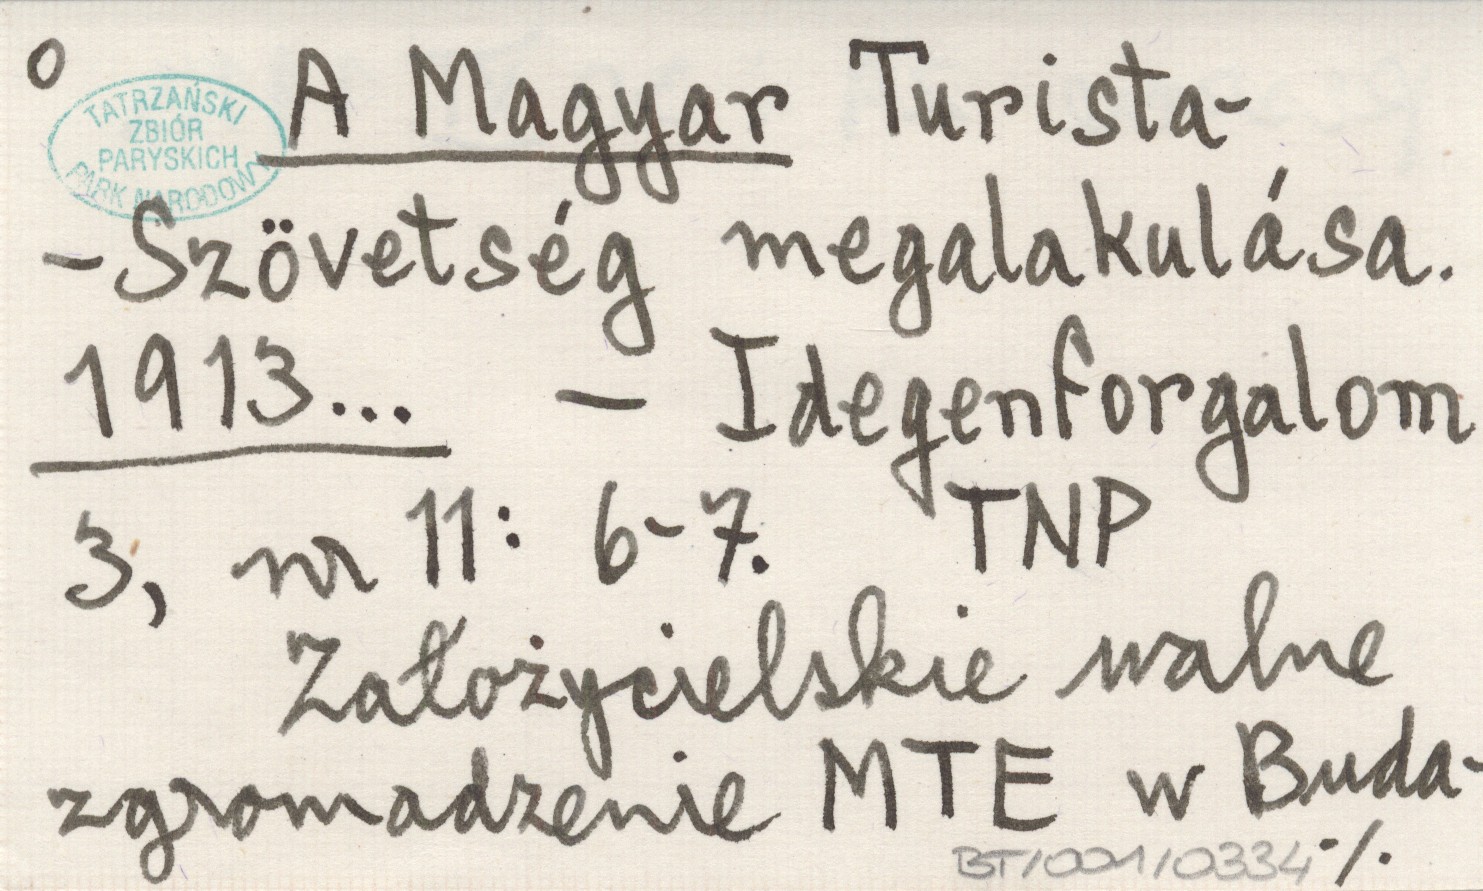 o
TATRZAŃSKI
ZBIÓR
PARYSKICH
PARK NARODOWY
A Magyar Turista-
-Szövetség megalakulása.
1913... - Idegenforgalom
3, nr 11: 6-7. TNP
Założycielskie walne
zgromadzenie MTE w Buda-
BT/001/0334 ·/·